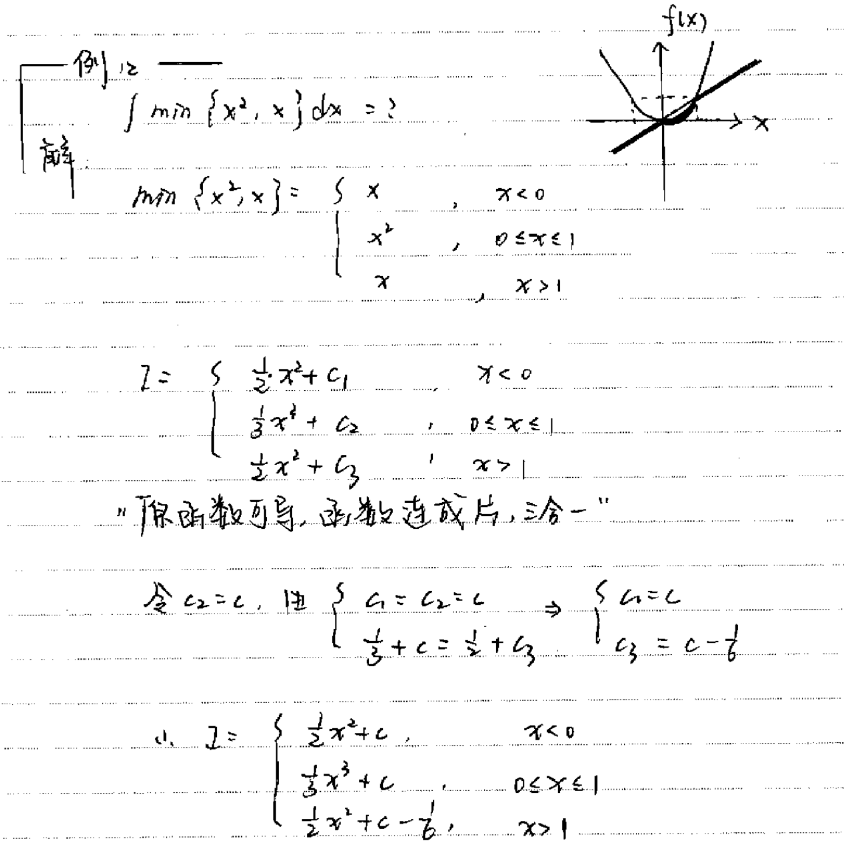 f(x)
例 12
∫ min {x², x} dx = ?
x
解:
min {x², x} = { x , x<0
x² , 0≤x≤1
x , x>1
I = { ½x² + C₁ , x<0
⅓x³ + C₂ , 0≤x≤1
½x² + C₃ , x>1
"原函数可导,函数连成片,三合一"
令 C₂=C, 由 { C₁=C₂=C ⇒ { C₁=C
⅓+C=½+C₃ C₃=C-⅙
∴ I = { ½x²+C, x<0
⅓x³+C , 0≤x≤1
½x²+C-⅙, x>1